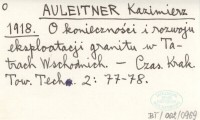 AULEITNER Kazimierz
1918. O konieczności i rozwoju
eksploatacji granitu w Ta-
trach Wschodnich. — Czas. Krak.
Tow. Techn. 2: 77-78.
BT/002/0969